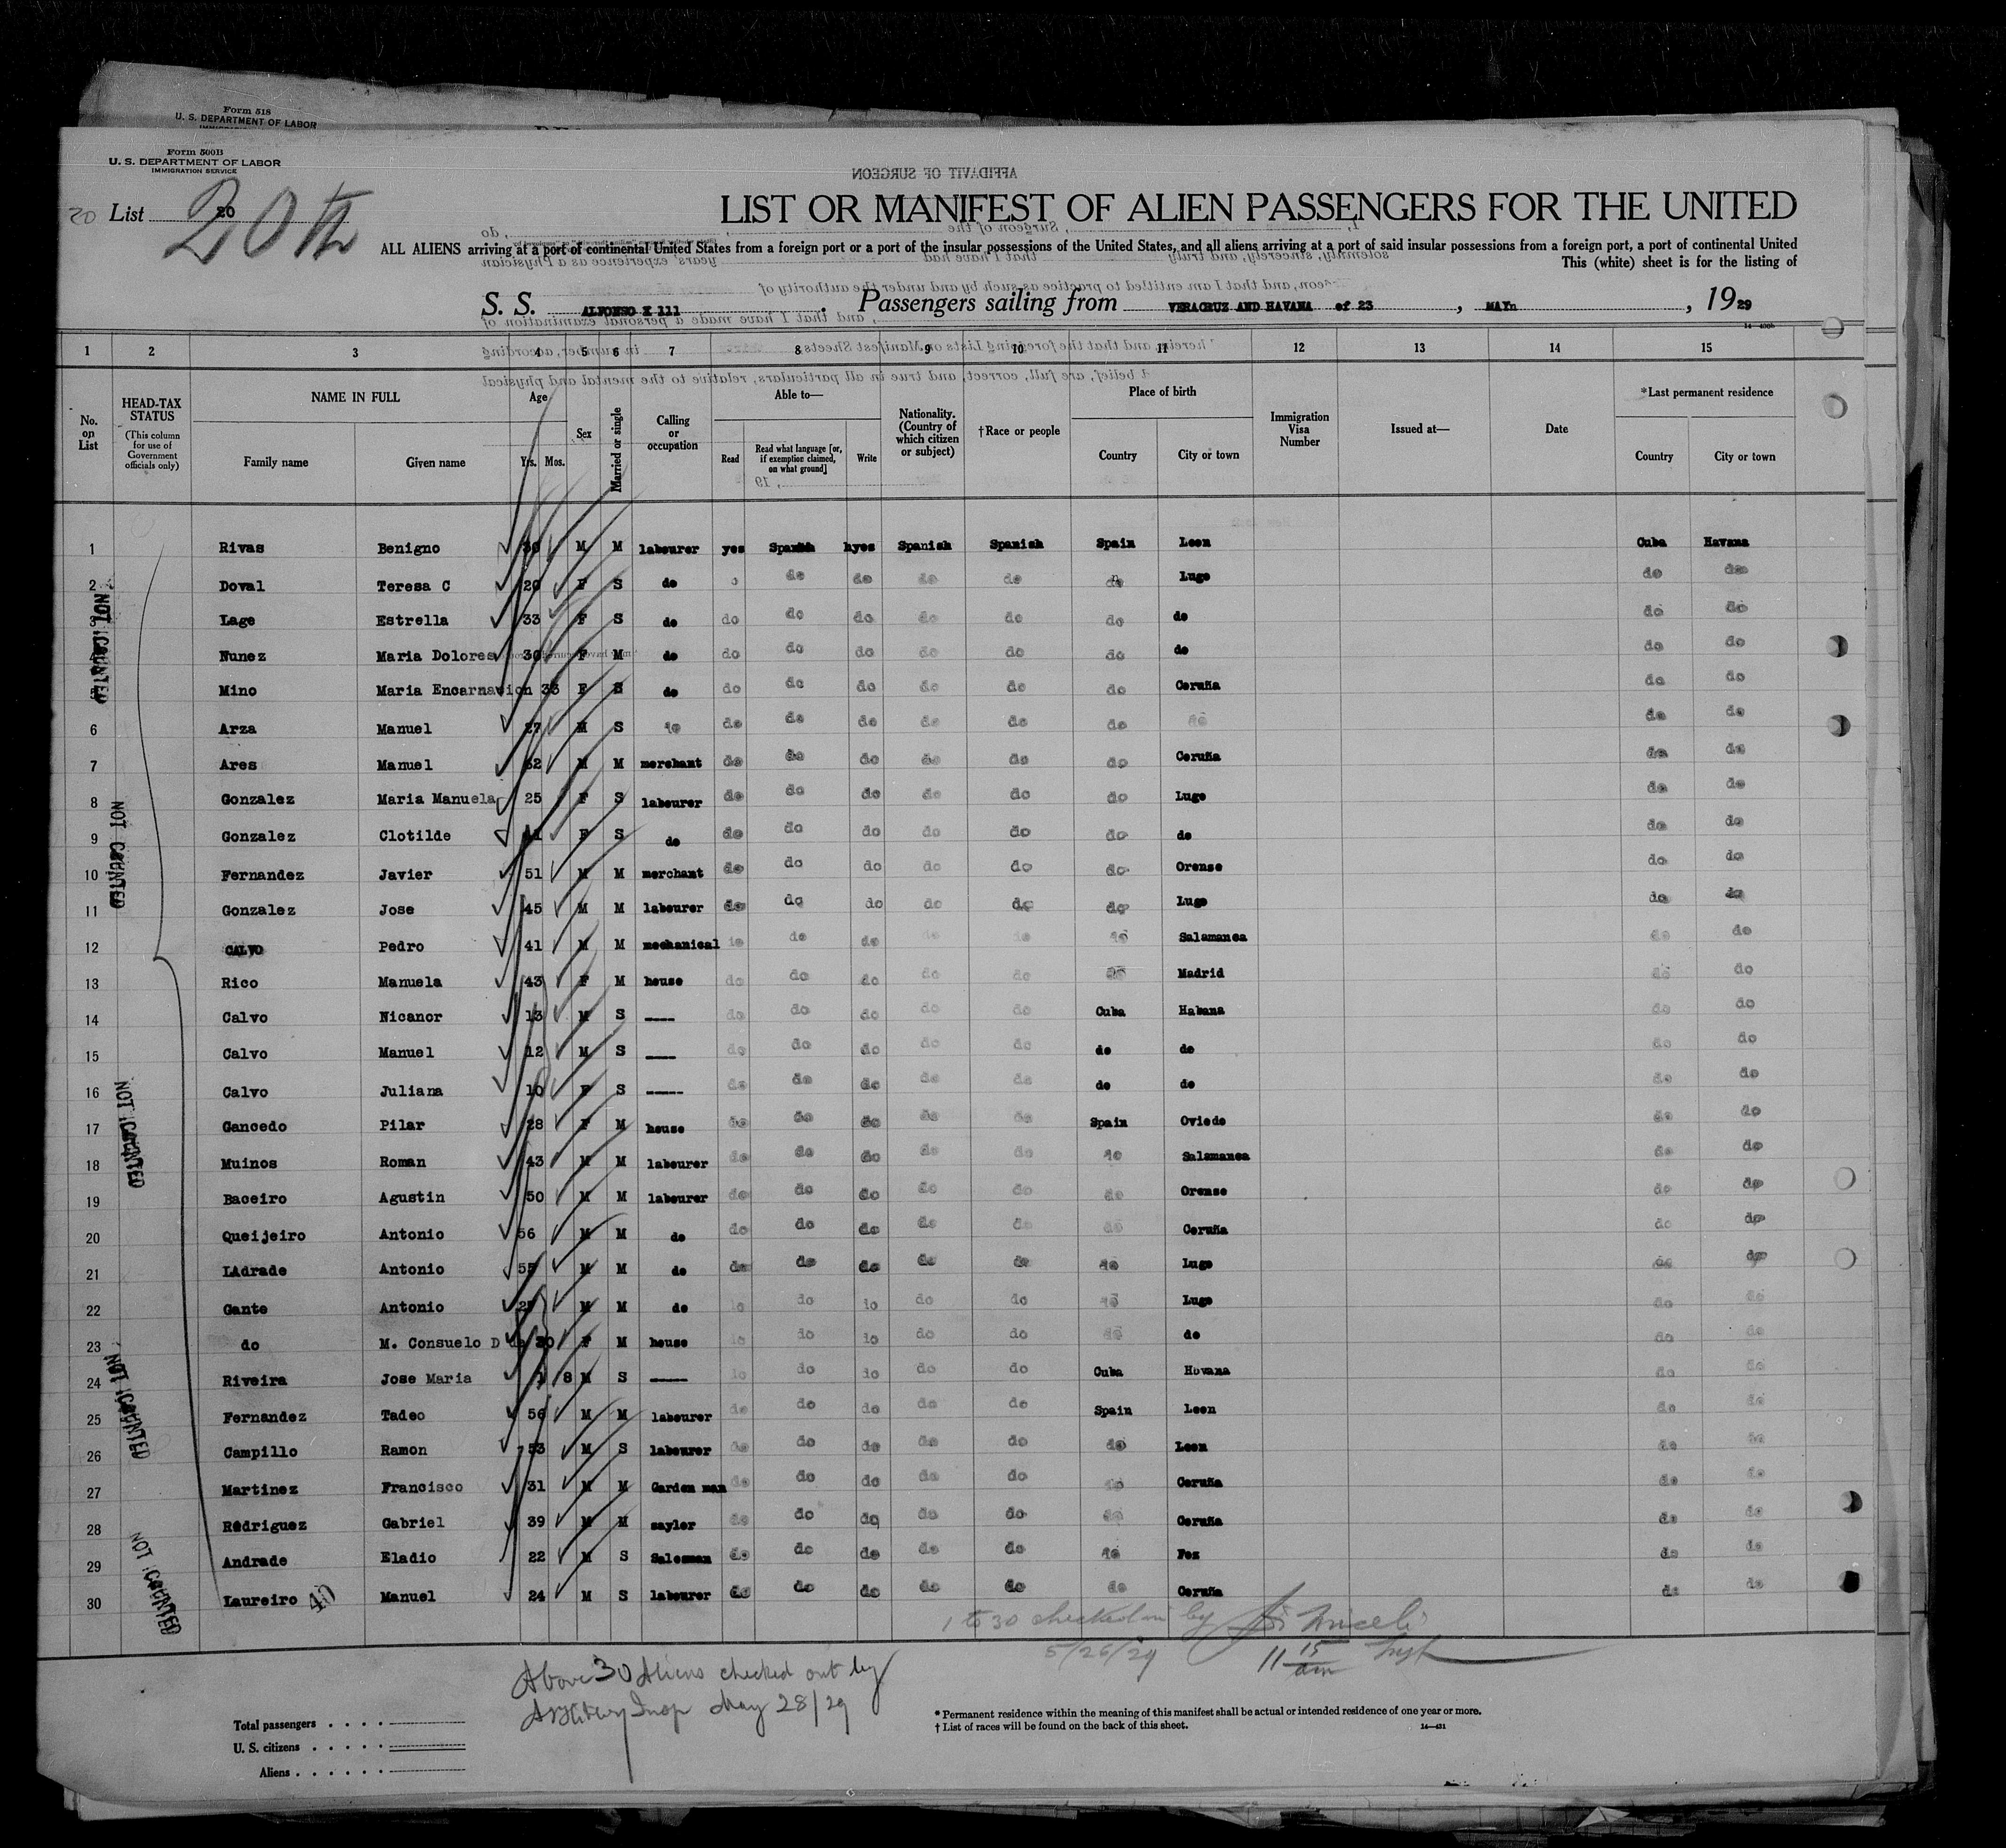 Form 518
U. S. DEPARTMENT OF LABOR
Form 500B
U. S. DEPARTMENT OF LABOR
IMMIGRATION SERVICE
AFFIDAVIT OF SURGEON
20 List 20
20th
LIST OR MANIFEST OF ALIEN PASSENGERS FOR THE UNITED
ALL ALIENS arriving at a port of continental United States from a foreign port or a port of the insular possessions of the United States, and all aliens arriving at a port of said insular possessions from a foreign port, a port of continental United
This (white) sheet is for the listing of
S. S. ALFONSO X 111 . Passengers sailing from VERACRUZ AND HAVANA of 23 , MAYn , 1929
1 2 3 4 5 6 7 8 9 10 11 12 13 14 15
No. on List
HEAD-TAX STATUS
(This column for use of Government officials only)
NAME IN FULL
Family name Given name
Age
Yrs. Mos.
Sex
Married or single
Calling or occupation
Able to—
Read
Read what language [or, if exemption claimed, on what ground]
Write
Nationality. (Country of which citizen or subject)
†Race or people
Place of birth
Country City or town
Immigration Visa Number
Issued at—
Date
*Last permanent residence
Country City or town
1 Rivas Benigno M M labourer yes Spanish hyes Spanish Spanish Spain Leon Cuba Havana
2 Doval Teresa C 20 F S do do do do do do Lugo do do
3 Lage Estrella 33 F S do do do do do do do do do do
4 Nunez Maria Dolores 30 F M do do do do do do do do do do
5 Mino Maria Encarnacion 33 F S do do do do do do do Coruña do do
6 Arza Manuel 27 M S do do do do do do do do do do
7 Ares Manuel M M merchant do do do do do do Coruña do do
8 Gonzalez Maria Manuela 25 F S labourer do do do do do do Lugo do do
9 Gonzalez Clotilde F S do do do do do do do do do do
10 Fernandez Javier 51 M M merchant do do do do do do Orense do do
11 Gonzalez Jose 45 M M labourer do do do do do do Lugo do do
12 CALVO Pedro 41 M M mechanical do do do do do do Salamanca do do
13 Rico Manuela 43 F M house do do do do do do Madrid do do
14 Calvo Nicanor 13 M S ---- do do do do do Cuba Habana do do
15 Calvo Manuel 12 M S ---- do do do do do do do do do
16 Calvo Juliana 10 F S ----- do do do do do do do do do
17 Gancedo Pilar 28 F M house do do do do do Spain Oviedo do do
18 Muinos Roman 43 M M labourer do do do do do do Salamanca do do
19 Baceiro Agustin 50 M M labourer do do do do do do Orense do do
20 Queijeiro Antonio 56 M M do do do do do do do Coruña do do
21 LAdrade Antonio 55 M M do do do do do do do Lugo do do
22 Gante Antonio M M do do do do do do do Lugo do do
23 do M. Consuelo D de 30 F M house do do do do do do do do do
24 Riveira Jose Maria 8 M S ----- do do do do do Cuba Hovana do do
25 Fernandez Tadeo 56 M M labourer do do do do do Spain Leon do do
26 Campillo Ramon 53 M S labourer do do do do do do Leon do do
27 Martinez Francisco 31 M M Garden man do do do do do do Coruña do do
28 Rodriguez Gabriel 39 M M saylor do do do do do do Coruña do do
29 Andrade Eladio 22 M S Salesman do do do do do do Fez do do
30 Laureiro 40 Manuel 24 M S labourer do do do do do do Coruña do do
NOT COUNTED
NOT COUNTED
NOT COUNTED
NOT COUNTED
NOT COUNTED
1 to 30 checked in by
5/26/29 11 15 am Insp
Above 30 Aliens checked out by
Insp May 28/29
Total passengers . . . .
U. S. citizens . . . . .
Aliens . . . . . .
* Permanent residence within the meaning of this manifest shall be actual or intended residence of one year or more.
† List of races will be found on the back of this sheet. 14—431